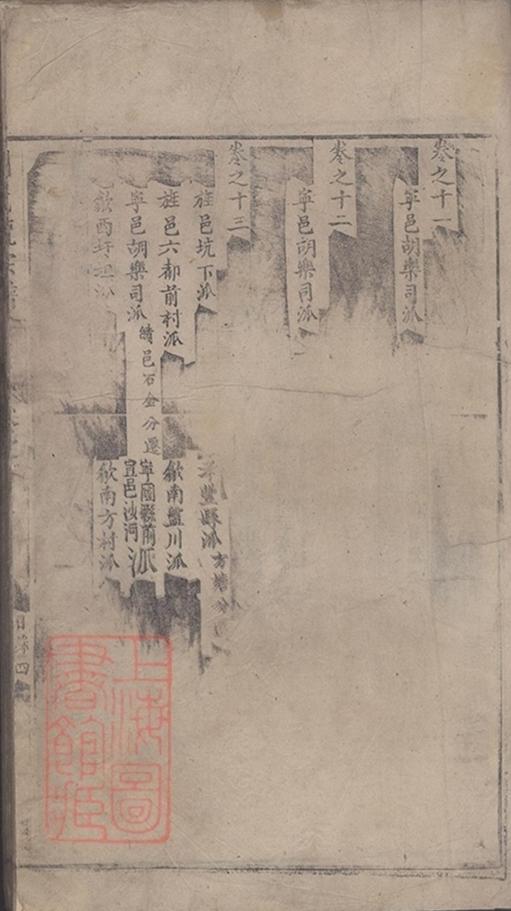 卷之十一
寧邑胡樂司派
卷之十二
寧邑胡樂司派
卷之十三
旌邑坑下派
豐縣派 方塘分
旌邑六都前村派
歙南鹽川派
寧邑胡樂司派 績邑石金分遷
寧國縣前
宣邑沙河
派
歙西
派
歙南方村派
目錄四
上海圖
書館